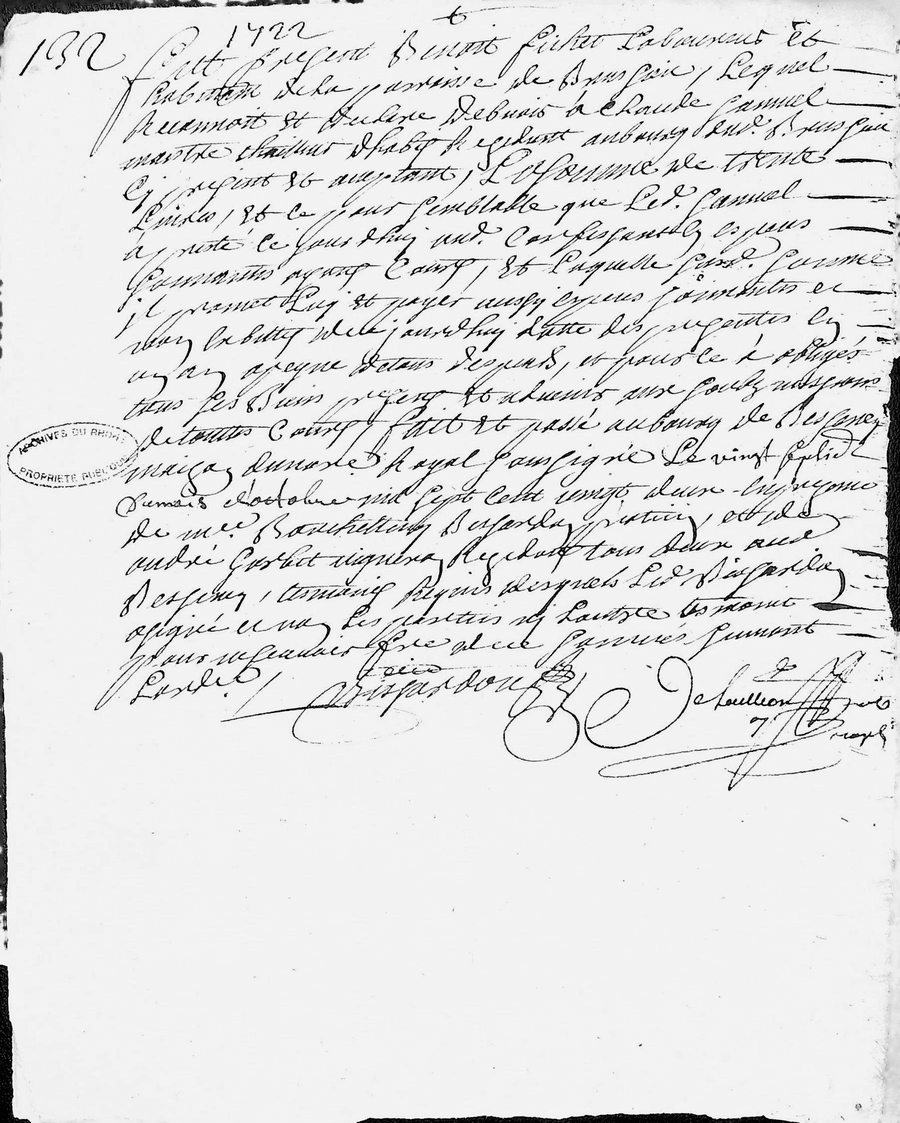 132
1722
Fust present Benoit fichet Laboureur et
habitant de la parroisse de Brussieu, Lequel
Reconnoit et declare debvoir a Claude Gamuel
maistre tailleur dhabits Residant aubourg dud. Brussieu
Cy present et aceptant, La Somme de trente
Livres, et ce pour semblable que Led. Gamuel
a presté ce jourdhuy aud. Confessant en espece
sonnantes ayant Cours, et laquelle susd. Somme
il promet Luy et payer aussy espece sonnantes et
non en billets de ce jourdhuy datte des presentes En
un an a peyne de tous despends, et pour ce a obligés
tous ses Biens presens et advenir aux
de touttes Cours, fait et passé au bourg de Bessenay
maison du nore Royal soussigné Le vingt septie
du mois d'octobre mil sept cent vingt deux en presence
de mee Berthellemy Besardon praticien, et de
andré vigneron Residant tous deux aud
Bessenay, tesmoins Requis desquels Led Besardon
a signé et non les parties ny Lautre tesmoint
pour ne scavoir fre de ce sommés suivant
Lordee
ARCHIVES DU RHONE
PROPRIETE PUBLIQUE